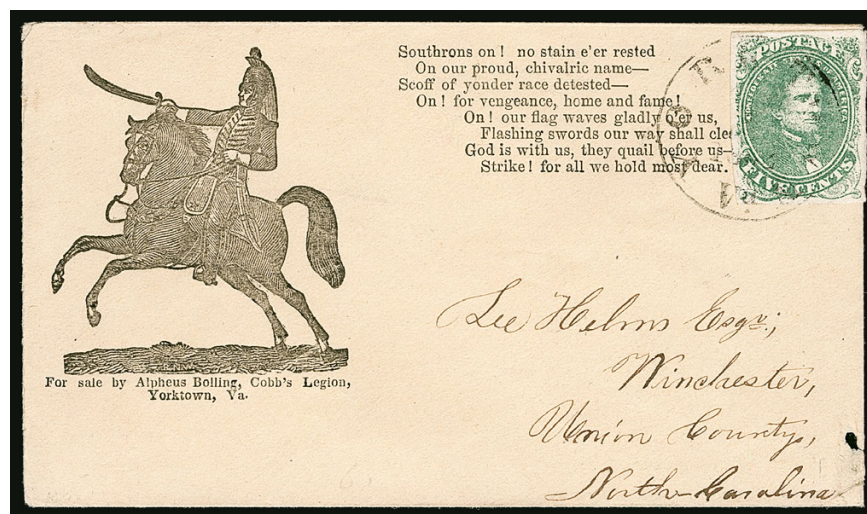 Southrons on! no stain e'er rested
On our proud, chivalric name—
Scoff of yonder race detested—
On! for vengeance, home and fame!
On! our flag waves gladly o'er us,
Flashing swords our way shall clea
God is with us, they quail before us—
Strike! for all we hold most dear.
POSTAGE
CONFEDERATE AMERICA
FIVE CENTS
For sale by Alpheus Bolling, Cobb's Legion,
Yorktown, Va.
Lee Helms Esqr;,
Winchester,
Union County,
North-Carolina